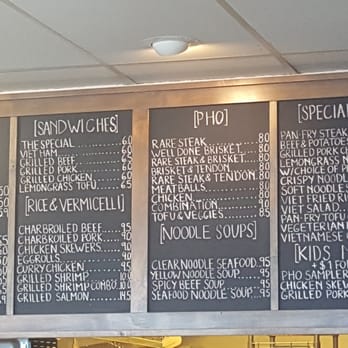 [SANDWICHES]
THE SPECIAL 60
VIET HAM 60
GRILLED BEEF 65
GRILLED PORK 60
GRILLED CHICKEN 60
LEMONGRASS TOFU 65
[RICE & VERMICELLI]
CHARBROILED BEEF 95
CHARBROILED PORK
CHICKEN SKEWERS
EGGROLLS
CURRY CHICKEN
GRILLED SHRIMP
GRILLED SHRIMP COMBO
GRILLED SALMON 145
[PHO]
RARE STEAK 80
WELL DONE BRISKET 80
RARE STEAK & BRISKET 80
BRISKET & TENDON 80
RARE STEAK & TENDON 80
MEATBALLS 80
CHICKEN 80
COMBINATION 90
TOFU & VEGGIES 85
[NOODLE SOUPS]
CLEAR NOODLE SEAFOOD 95
YELLOW NOODLE SOUP 95
SPICY BEEF SOUP 95
SEAFOOD NOODLE SOUP 95
[SPECIAL
PAN-FRY STEAK
BEEF & POTATOE
GRILLED PORK C
LEMONGRASS
W/CHOICE OF
CRISPY NOODL
SOFT NOODLES
VIET FRIED RI
VIET SALAD
PAN-FRY TOFU
VEGETERIAN
VIETNAMESE C
[KIDS
+ $1 FO
PHO SAMPLER
CHICKEN SKEW
GRILLED PORK